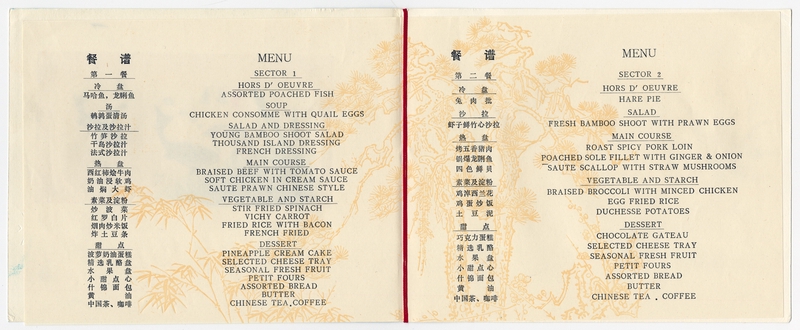 餐 谱
第 一 餐
冷 盘
马哈鱼、龙脷鱼
汤
鹌鹑蛋清汤
沙拉及沙拉汁
竹笋沙拉
千岛沙拉汁
法式沙拉汁
热 盘
西红柿烩牛肉
奶油浸软鸡
油焖大虾
素菜及淀粉
炒 菠 菜
红罗白片
烟肉炒米饭
炸土豆条
甜 点
菠萝奶油蛋糕
精选乳酪
水 果 盘
小甜点心
什锦面包
黄 油
中国茶、咖啡
MENU
SECTOR 1
HORS D' OEUVRE
ASSORTED POACHED FISH
SOUP
CHICKEN CONSOMME WITH QUAIL EGGS
SALAD AND DRESSING
YOUNG BAMBOO SHOOT SALAD
THOUSAND ISLAND DRESSING
FRENCH DRESSING
MAIN COURSE
BRAISED BEEF WITH TOMATO SAUCE
SOFT CHICKEN IN CREAM SAUCE
SAUTE PRAWN CHINESE STYLE
VEGETABLE AND STARCH
STIR FRIED SPINACH
VICHY CARROT
FRIED RICE WITH BACON
FRENCH FRIED
DESSERT
PINEAPPLE CREAM CAKE
SELECTED CHEESE TRAY
SEASONAL FRESH FRUIT
PETIT FOURS
ASSORTED BREAD
BUTTER
CHINESE TEA.COFFEE
餐 谱
第 二 餐
冷 盘
兔 肉 批
沙 拉
虾子鲜竹心沙拉
热 盘
烤五香猪肉
龙脷鱼
四色鲜贝
素菜及淀粉
鸡茸西兰花
鸡蛋炒饭
土 豆 泥
甜 点
巧克力蛋糕
精选乳酪
水 果 盘
小甜点心
什锦面包
黄 油
中国茶、咖啡
MENU
SECTOR 2
HORS D' OEUVRE
HARE PIE
SALAD
FRESH BAMBOO SHOOT WITH PRAWN EGGS
MAIN COURSE
ROAST SPICY PORK LOIN
POACHED SOLE FILLET WITH GINGER & ONION
SAUTE SCALLOP WITH STRAW MUSHROOMS
VEGETABLE AND STARCH
BRAISED BROCCOLI WITH MINCED CHICKEN
EGG FRIED RICE
DUCHESSE POTATOES
DESSERT
CHOCOLATE GATEAU
SELECTED CHEESE TRAY
SEASONAL FRESH FRUIT
PETIT FOURS
ASSORTED BREAD
BUTTER
CHINESE TEA . COFFEE